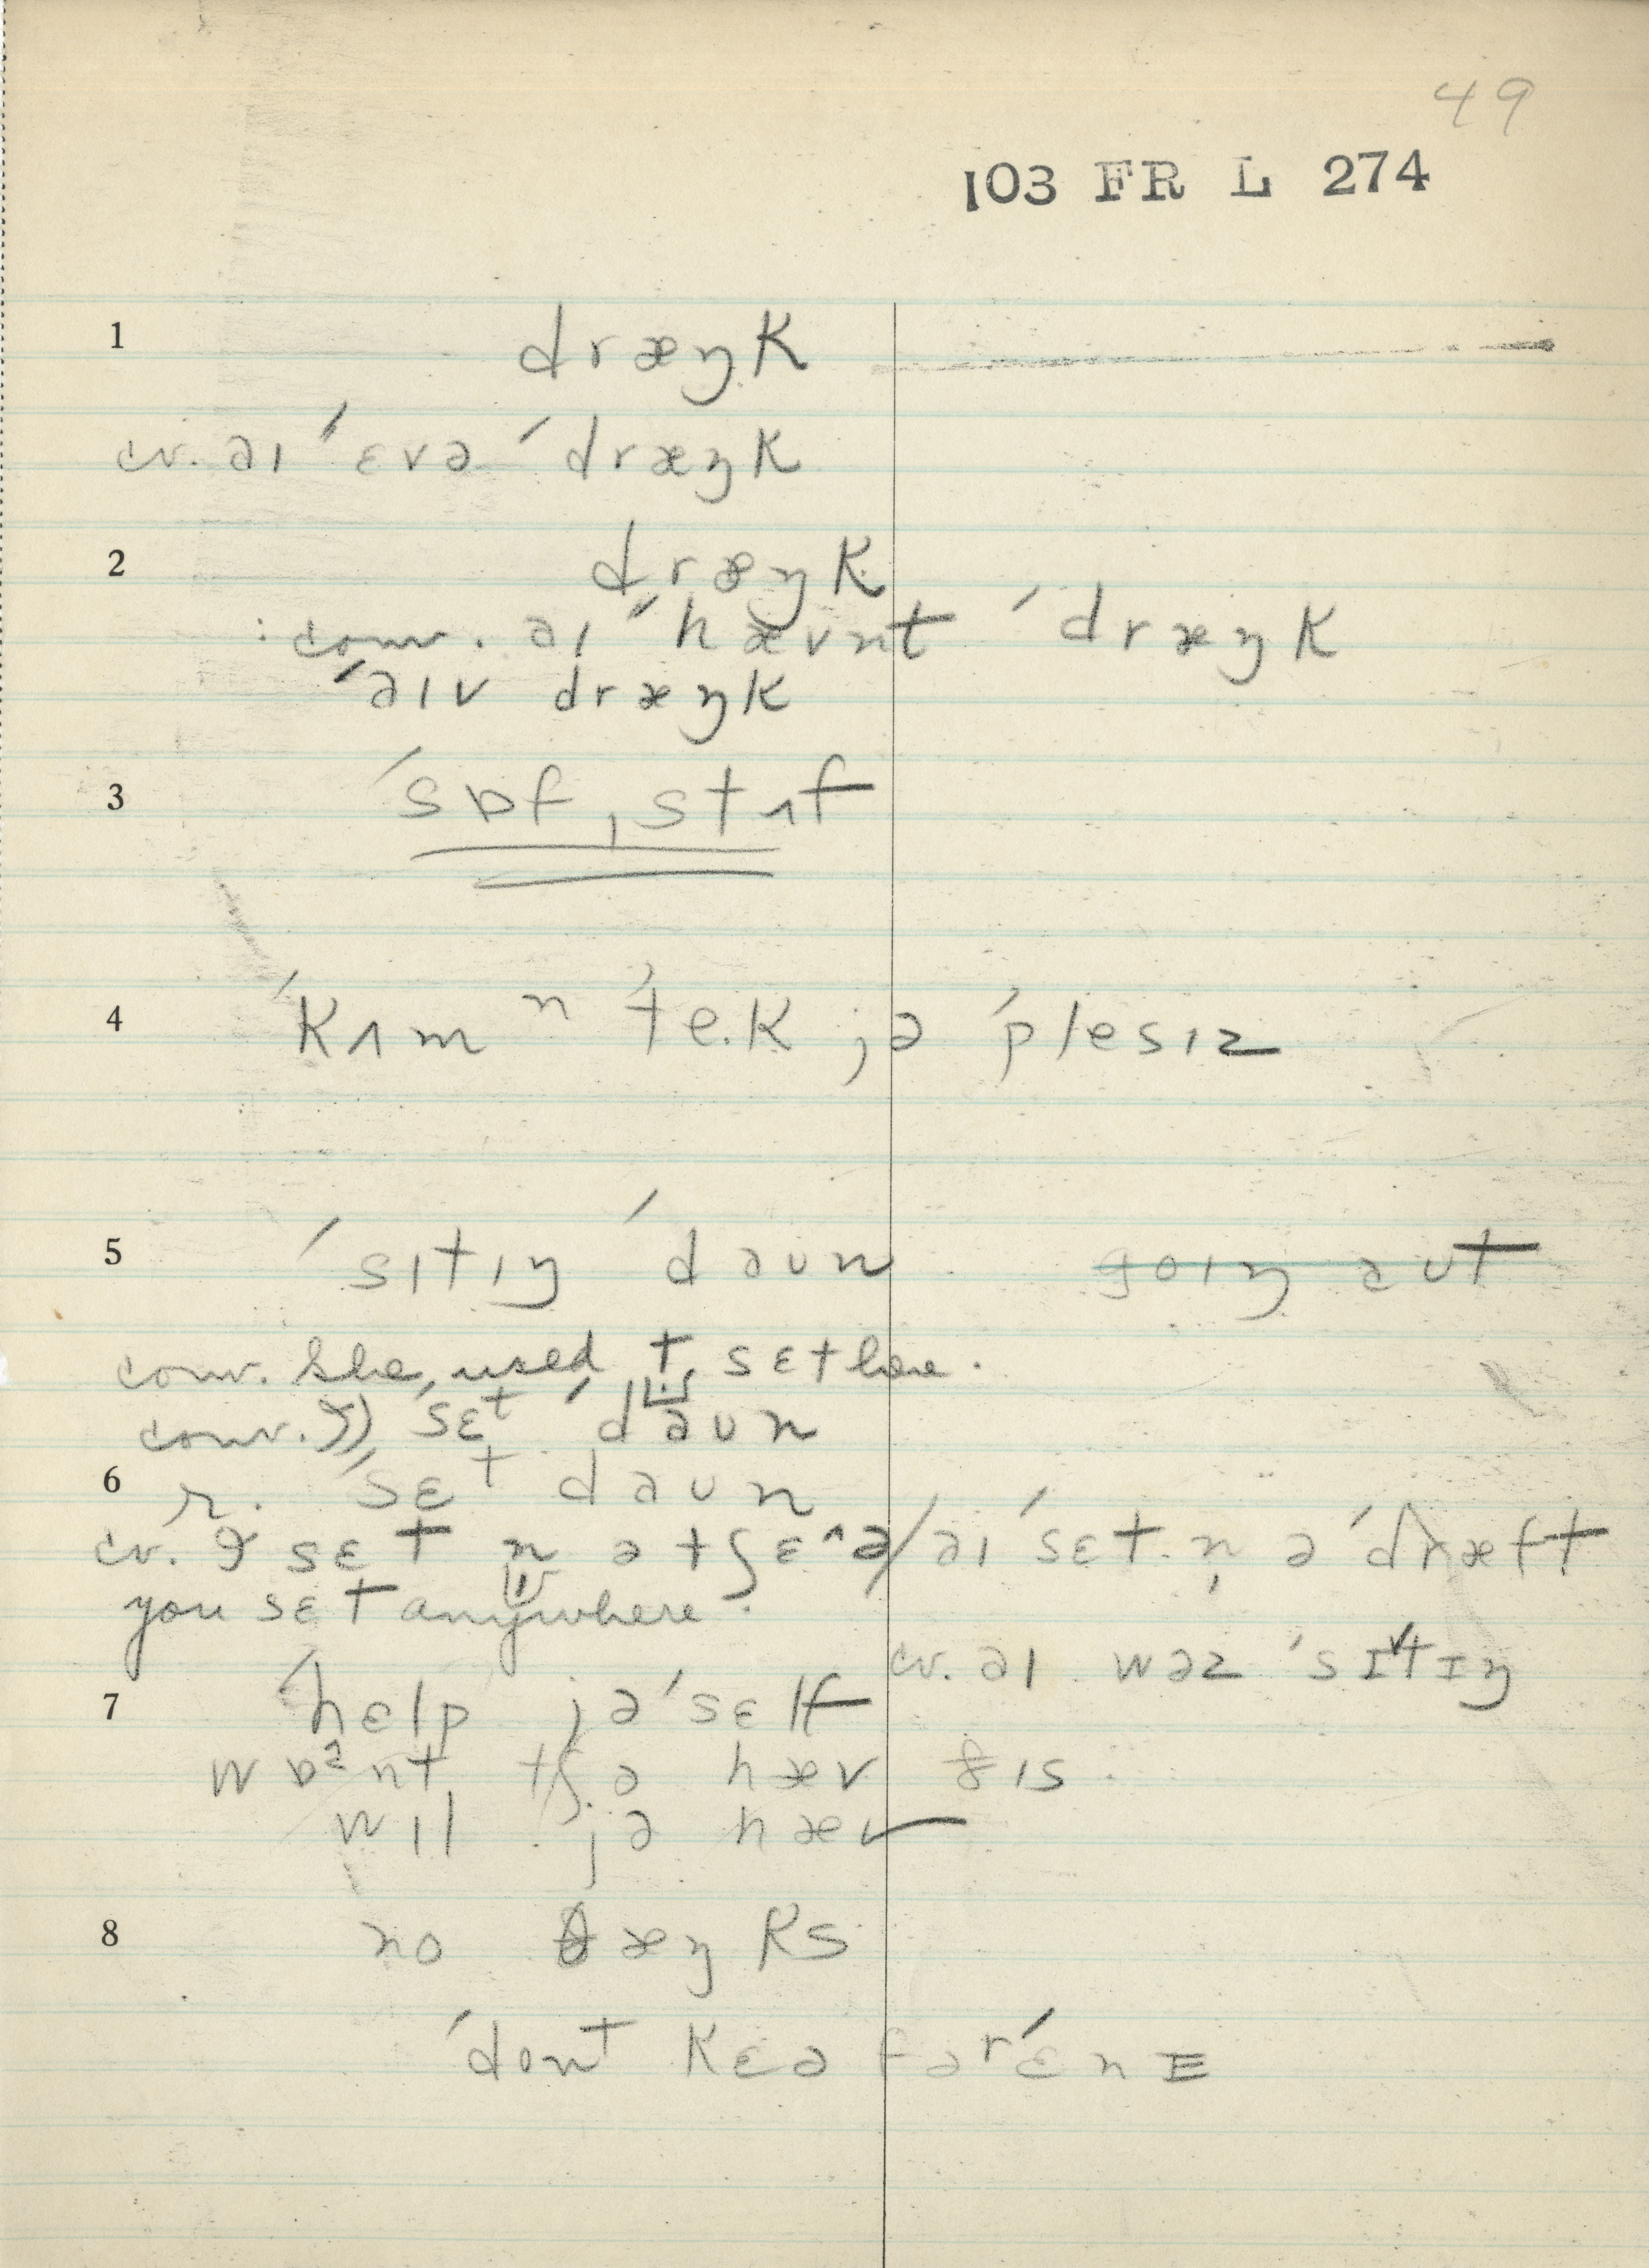 49
103 FR L 274
1 dræŋk
cv. əɪ ˈɛvə ˈdræŋk
2 dræŋk
: conv. əɪ ˈhævnt ˈdræŋk
ˈəɪv dræŋk
3 ˈsɒf ˌstʌf
4 ˈkʌm n ˈte.k jə ˈplesɪz
5 ˈsɪtɪŋ ˈdəʊn goɪŋ əʊt
conv. She used t sɛt here.
conv. ˈsɛt ˈdəʊn
6 r. ˈsɛt dəʊn
cv. I sɛt n ə tʃɛ^ə / əɪ ˈsɛt. n̩ ə ˈdræft
you sɛt anywhere.
cv. əɪ wəz ˈsɪtɪŋ
7 ˈhɛlp jə ˈsɛlf
wɒᵊnt tʃə hæv ðɪs
wɪl jə hæv
8 no θæŋks
ˈdont kɛə fər ˈɛnɪ